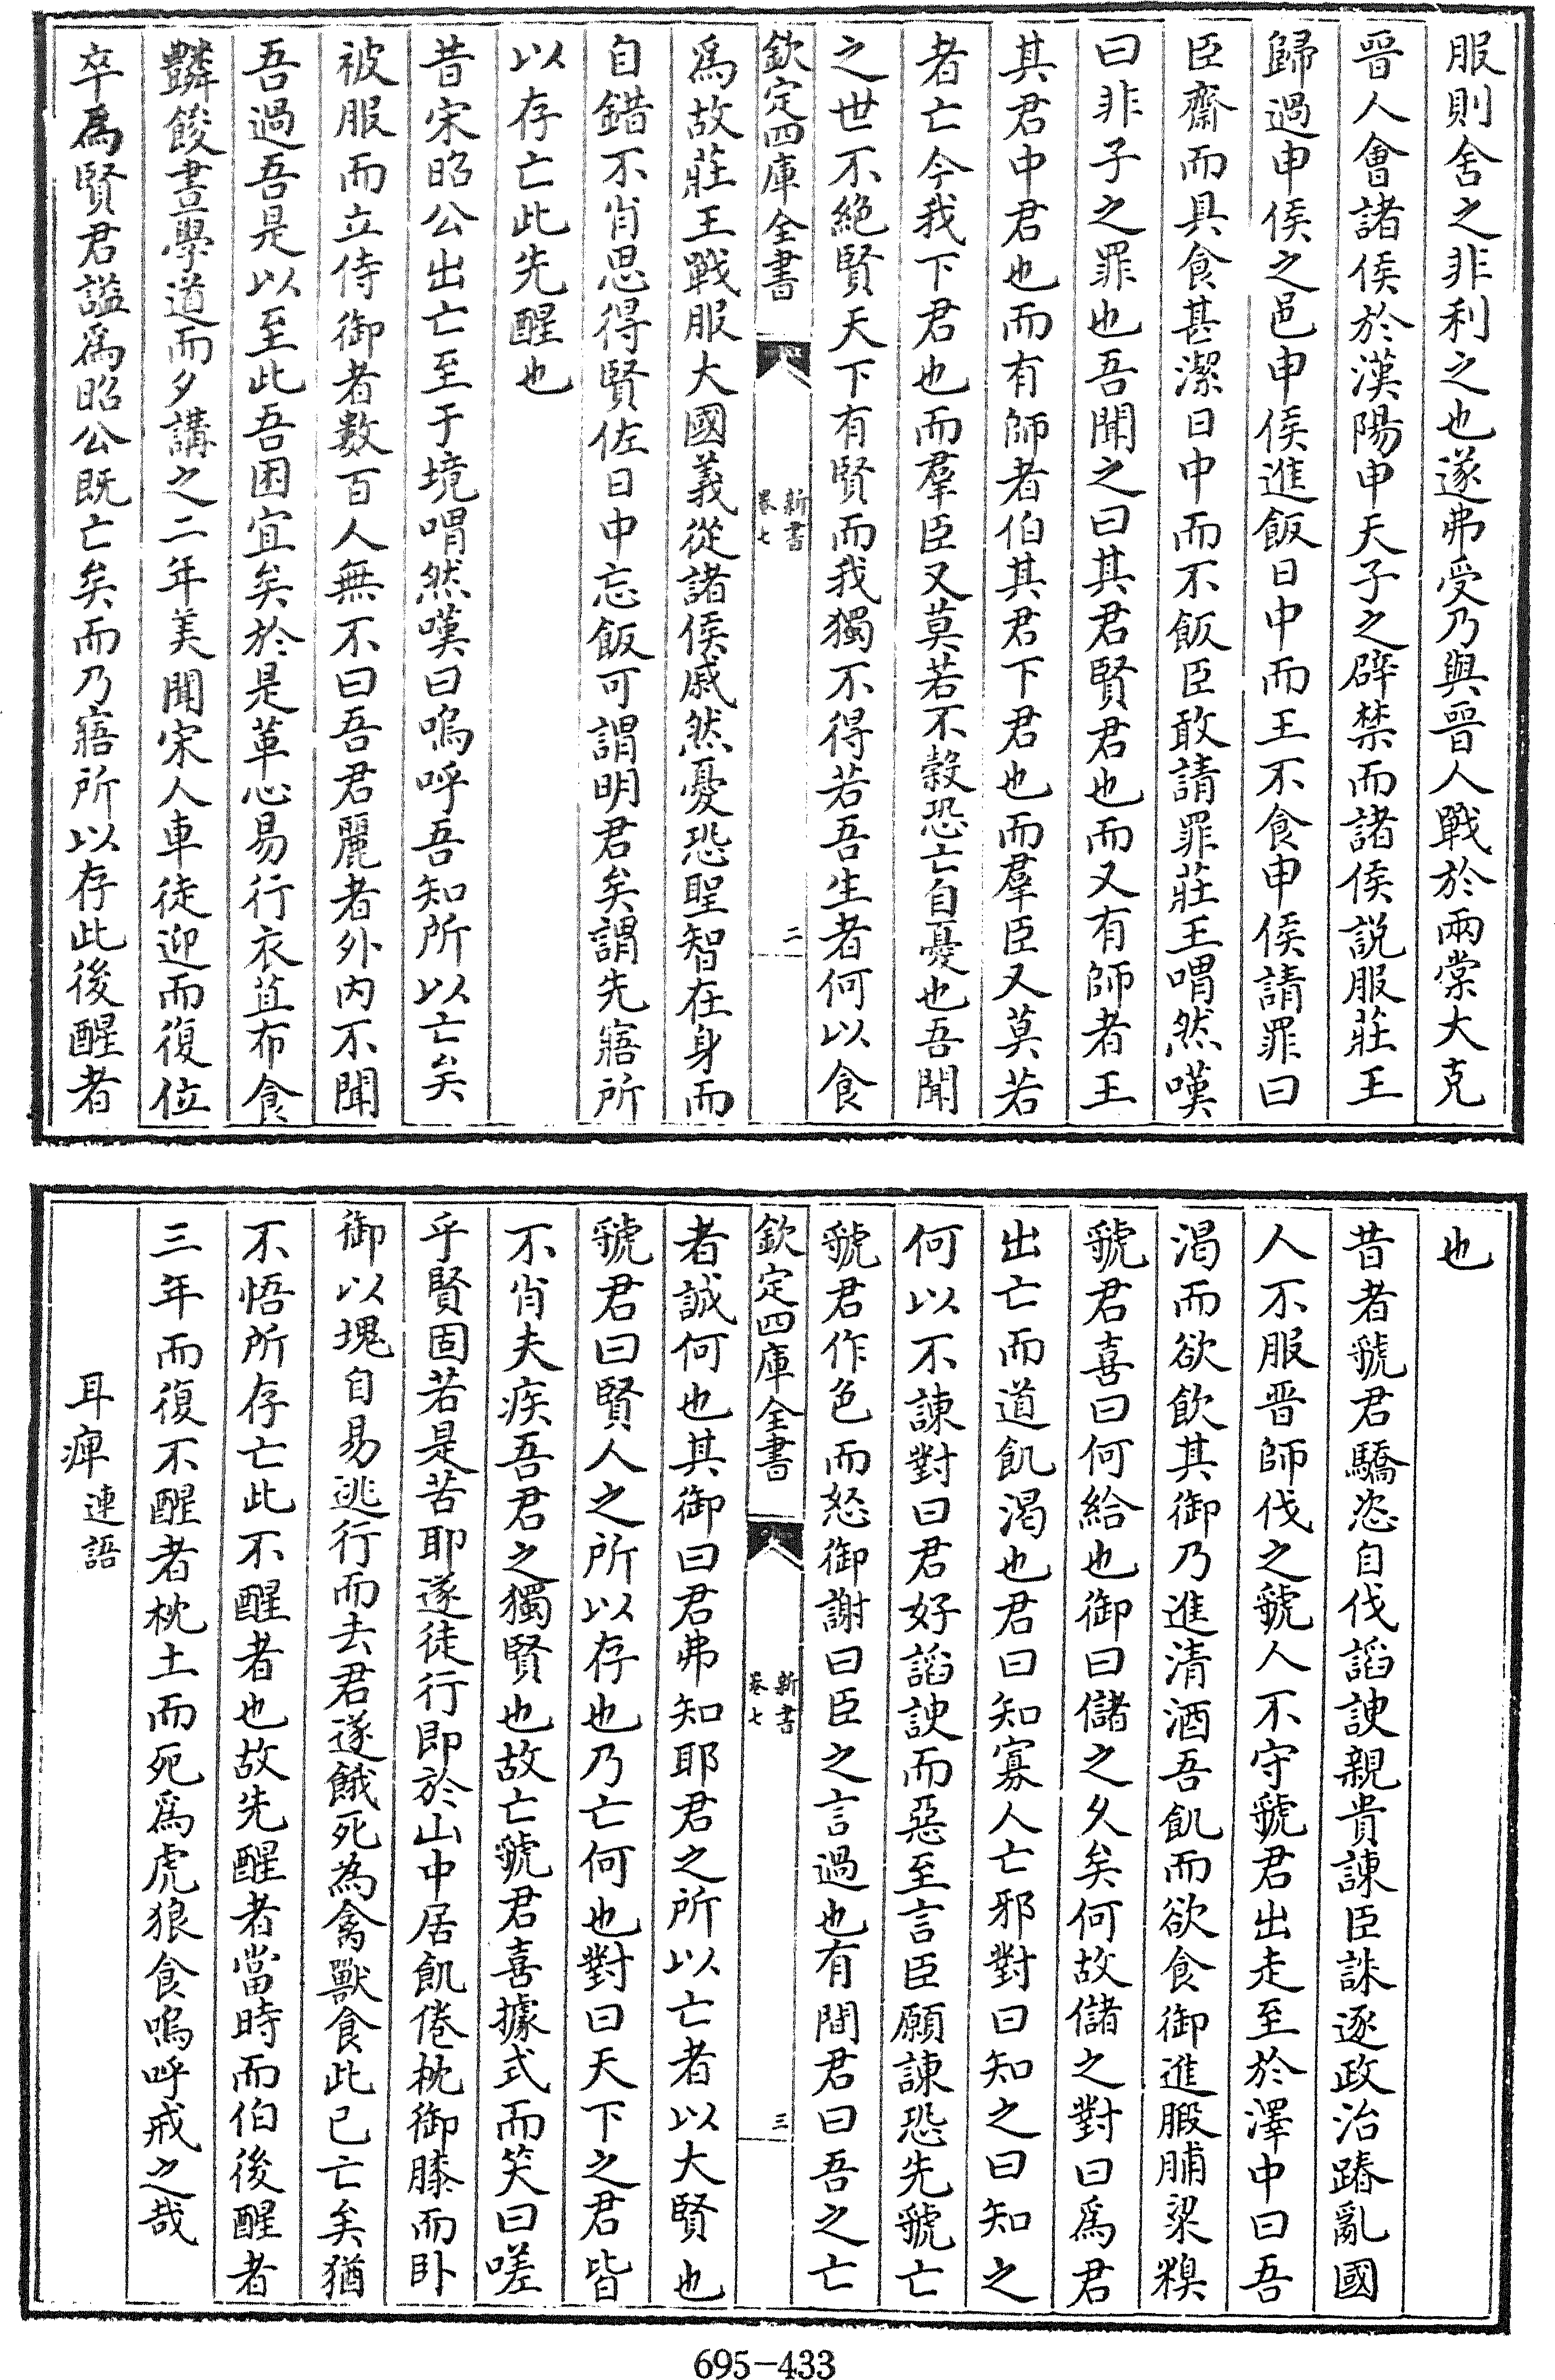 服則舍之非利之也遂弗受乃與晉人戰於兩棠大克
晉人會諸侯於漢陽申天子之辟禁而諸侯説服莊王
歸過申侯之邑申侯進飯日中而王不食申侯請罪曰
臣齋而具食甚潔日中而不飯臣敢請罪莊王喟然嘆
曰非子之罪也吾聞之曰其君賢君也而又有師者王
其君中君也而有師者伯其君下君也而羣臣又莫若
者亡今我下君也而羣臣又莫若不穀恐亡自憂也吾聞
之世不絶賢天下有賢而我獨不得若吾生者何以食
欽定四庫全書
新書
卷七
二
爲故莊王戰服大國義從諸侯戚然憂恐聖智在身而
自錯不肖思得賢佐日中忘飯可謂明君矣謂先寤所
以存亡此先醒也
昔宋昭公出亡至于境喟然嘆曰嗚呼吾知所以亡矣
被服而立侍御者數百人無不曰吾君麗者外内不聞
吾過吾是以至此吾困宜矣於是革心易行衣苴布食
䴫餕晝學道而夕講之二年美聞宋人車徒迎而復位
卒爲賢君諡爲昭公既亡矣而乃寤所以存此後醒者
也
昔者虢君驕恣自伐諂諛親貴諫臣誅逐政治踳亂國
人不服晉師伐之虢人不守虢君出走至於澤中曰吾
渴而欲飲其御乃進清酒吾飢而欲食御進腶脯粱糗
虢君喜曰何給也御曰儲之久矣何故儲之對曰爲君
出亡而道飢渴也君曰知寡人亡邪對曰知之曰知之
何以不諫對曰君好諂諛而惡至言臣願諫恐先虢亡
虢君作色而怒御謝曰臣之言過也有間君曰吾之亡
欽定四庫全書
新書
卷七
三
者誠何也其御曰君弗知耶君之所以亡者以大賢也
虢君曰賢人之所以存也乃亡何也對曰天下之君皆
不肖夫疾吾君之獨賢也故亡虢君喜據式而笑曰嗟
乎賢固若是苦耶遂徒行即於山中居飢倦枕御膝而卧
御以塊自易逃行而去君遂餓死為禽獸食此已亡矣猶
不悟所存亡此不醒者也故先醒者當時而伯後醒者
三年而復不醒者枕土而死爲虎狼食嗚呼戒之哉
耳痺 連語
695-433